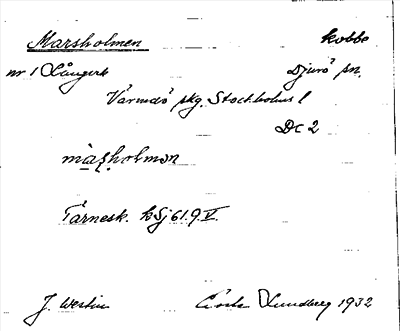 Marsholmen kobbe
nr 1 Långvik Djurö sn.
Värmdö skg. Stockholms l
Dc 2
maʂholmən
Tärnesk. kSj 61.9.V.
J. Westin Gösta Lundberg 1932